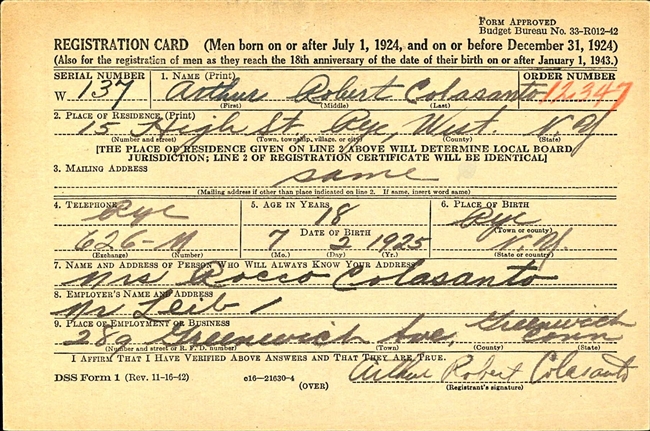 FORM APPROVED
BUDGET BUREAU NO. 33-R012-42
REGISTRATION CARD (Men born on or after July 1, 1924, and on or before December 31, 1924)
(Also for the registration of men as they reach the 18th anniversary of the date of their birth on or after January 1, 1943.)
SERIAL NUMBER 1. NAME (Print) ORDER NUMBER
W 137 Arthur Robert Colasanto 12,347
(First) (Middle) (Last)
2. PLACE OF RESIDENCE (Print)
15 High St. Rye, West. N.Y.
(Number and street) (Town, township, village, or city) (County) (State)
[THE PLACE OF RESIDENCE GIVEN ON LINE 2 ABOVE WILL DETERMINE LOCAL BOARD
JURISDICTION; LINE 2 OF REGISTRATION CERTIFICATE WILL BE IDENTICAL]
3. MAILING ADDRESS
same
(Mailing address if other than place indicated on line 2. If same, insert word same)
4. TELEPHONE 5. AGE IN YEARS 6. PLACE OF BIRTH
Rye 18 Rye
DATE OF BIRTH (Town or county)
626-M 7 2 1925 N.Y.
(Exchange) (Number) (Mo.) (Day) (Yr.) (State or country)
7. NAME AND ADDRESS OF PERSON WHO WILL ALWAYS KNOW YOUR ADDRESS
Mrs Rocco Colasanto
8. EMPLOYER'S NAME AND ADDRESS
Mr Leib
9. PLACE OF EMPLOYMENT OR BUSINESS
289 Greenwich Ave, Greenwich Conn
(Number and street or R. F. D. number) (Town) (County) (State)
I AFFIRM THAT I HAVE VERIFIED ABOVE ANSWERS AND THAT THEY ARE TRUE.
DSS Form 1 (Rev. 11-16-42) 16-21630-4 Arthur Robert Colasanto
(OVER) (Registrant's signature)